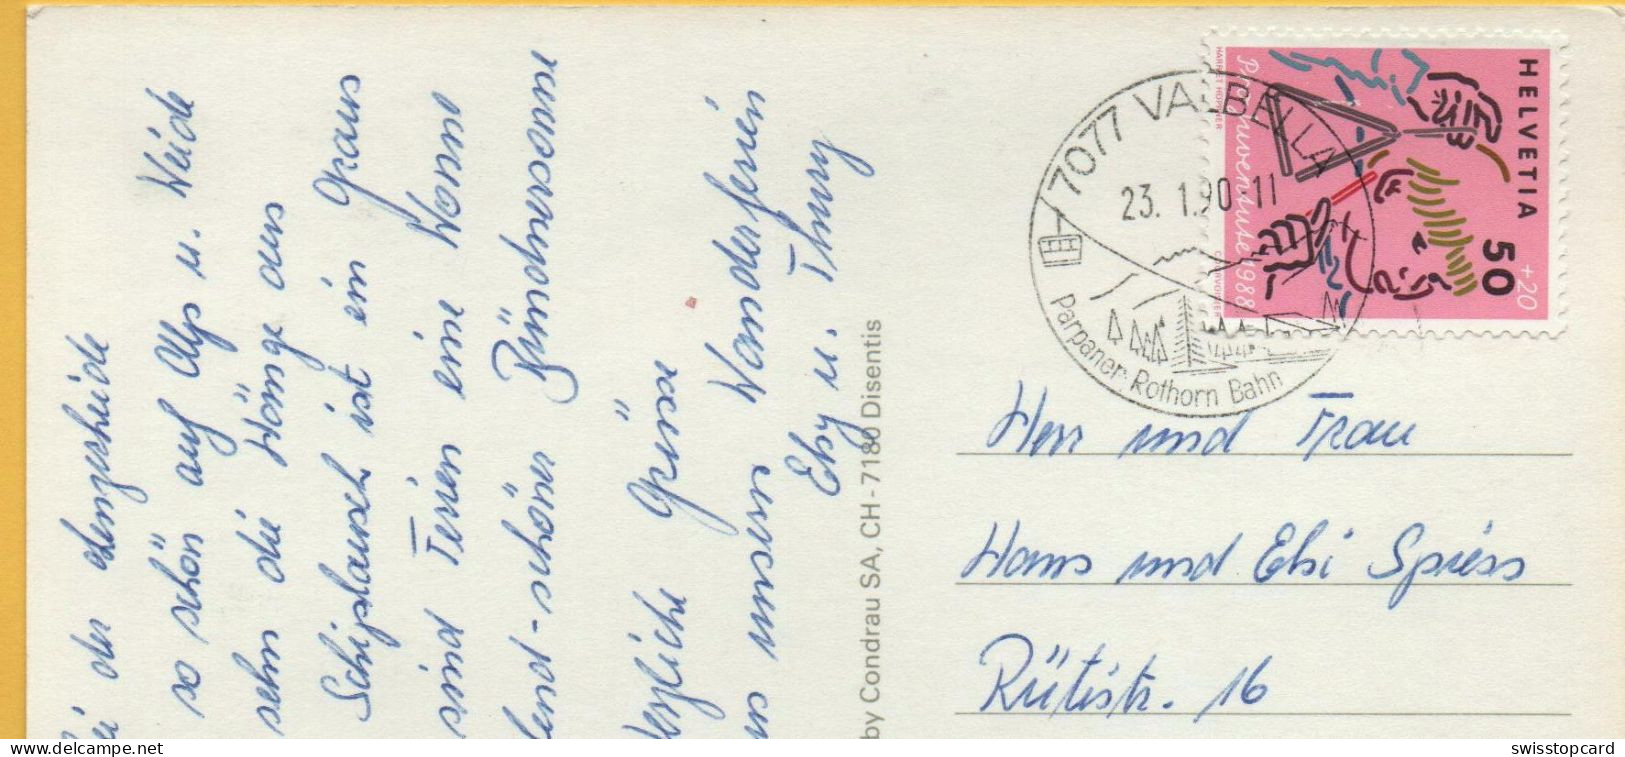 der Lenzerheide
so schön auf Alp u. Weide
sehn die Hänge aus
Schiplausch ist ein Graus
sind Ferien eine Wonne
schöne Bündnersonne
Herzliche Grüsse
unseren Wanderferien
Elsy u.
by Condrau SA, CH - 7180 Disentis
7077 VALBELLA
23. 1.90-11
Parpaner-Rothorn Bahn
HELVETIA
50
+20
Pro Juventute 1988
Herr und Frau
Hans und Elsi Spiess
Rütistr. 16
swisstopcard
https://www.delcampe.net